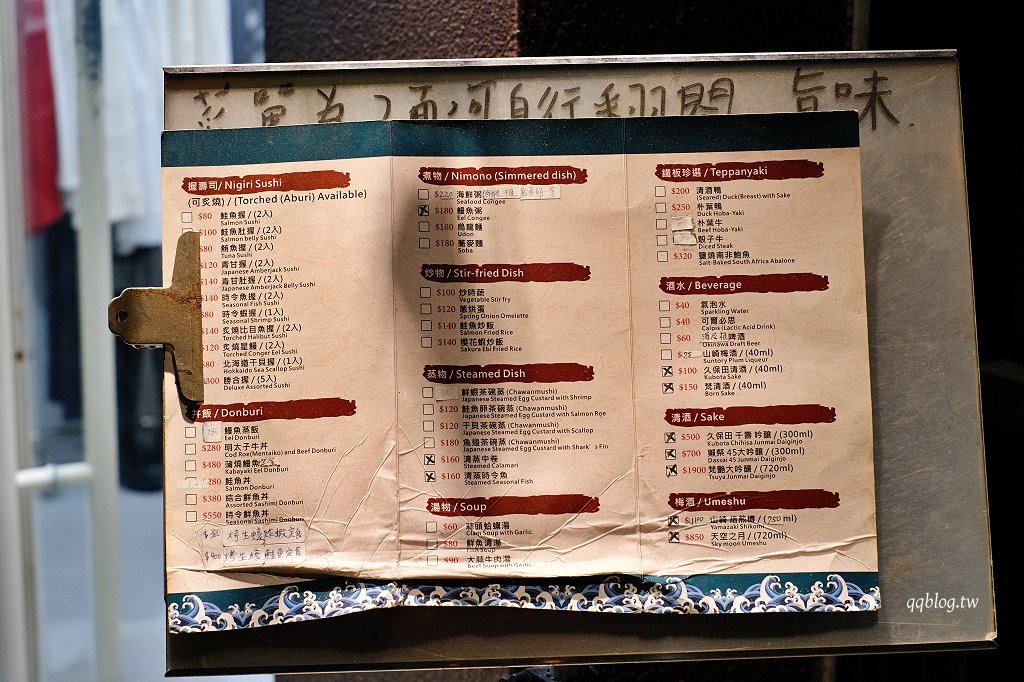 菜單為2面,可自行翻閱 旨味.
握壽司 / Nigiri Sushi
(可炙燒) / (Torched (Aburi) Available)
$80 鮭魚握 / (2入)
Salmon Sushi
$100 鮭魚肚握 / (2入)
Salmon belly Sushi
$80 鮪魚握 / (2入)
Tuna Sushi
$120 青甘握 / (2入)
Japanese Amberjack Sushi
$140 青甘肚握 / (2入)
Japanese Amberjack Belly Sushi
$140 時令魚握 / (2入)
Seasonal Fish Sushi
$80 時令蝦握 / (1入)
Seasonal Shrimp Sushi
$140 炙燒比目魚握 / (2入)
Torched Halibut Sushi
$120 炙燒星鰻 / (2入)
Torched Conger Eel Sushi
$80 北海道干貝握 / (1入)
Hokkaido Sea Scallop Sushi
$300 勝合握 / (5入)
Deluxe Assorted Sushi
丼飯 / Donburi
鰻魚蒸飯
Eel Donburi
$280 明太子牛丼
Cod Roe(Mentaiko) and Beef Donburi
$480 蒲燒鰻魚
Kabayaki Eel Donburi
$280 鮭魚丼
Salmon Donburi
$380 綜合鮮魚丼
Assorted Sashimi Donburi
$550 時令鮮魚丼
Seasonal Sashimi Donburi
烤生蠔炸蝦定食
烤生蠔鮭魚定食
煮物 / Nimono (Simmered dish)
$220 海鮮粥
Seafood Congee
$180 鰻魚粥
Eel Congee
$180 烏龍麵
Udon
$180 蕎麥麵
Soba
炒物 / Stir-fried Dish
$100 炒時蔬
Vegetable Stir fry
$120 蔥烘蛋
Spring Onion Omelette
$140 鮭魚炒飯
Salmon Fried Rice
$140 櫻花蝦炒飯
Sakura Ebi Fried Rice
蒸物 / Steamed Dish
鮮蝦茶碗蒸 (Chawanmushi)
Japanese Steamed Egg Custard with Shrimp
$120 鮭魚卵茶碗蒸 (Chawanmushi)
Japanese Steamed Egg Custard with Salmon Roe
$120 干貝茶碗蒸 (Chawanmushi)
Japanese Steamed Egg Custard with Scallop
$180 魚翅茶碗蒸 (Chawanmushi)
Japanese Steamed Egg Custard with Shark's Fin
$160 清蒸中卷
Steamed Calamari
$160 清蒸時令魚
Steamed Seasonal Fish
湯物 / Soup
$60 蒜頭蛤蠣湯
Clam Soup with Garlic
$80 鮮魚清湯
Fish Soup
$90 大蒜牛肉湯
Beef Soup with Garlic
鐵板珍選 / Teppanyaki
$200 清酒鴨
(Seared) Duck(Breast) with Sake
$250 朴葉鴨
Duck Hoba-Yaki
朴葉牛
Beef Hoba-Yaki
骰子牛
Diced Steak
$320 鹽燒南非鮑魚
Salt-Baked South Africa Abalone
酒水 / Beverage
$40 氣泡水
Sparkling Water
$40 可爾必思
Calpis (Lactic Acid Drink)
$60 啤酒
Okinawa Draft Beer
$75 山崎梅酒 / (40ml)
Suntory Plum Liqueur
$100 久保田清酒 / (40ml)
Kubota Sake
$150 梵清酒 / (40ml)
Born Sake
清酒 / Sake
$500 久保田 千壽 吟釀 / (300ml)
Kubota Chihisa Junmai Daiginjo
$700 獺祭 45大吟釀 / (300ml)
Dassai 45 Junmai Daiginjo
$1900 梵艷大吟釀 / (720ml)
Tsuya Junmai Daiginjo
梅酒 / Umeshu
山崎 焙煎樽 / (750ml)
Yamazaki Shikomi
$850 天空之月 / (720ml)
Sky moon Umeshu
qqblog.tw